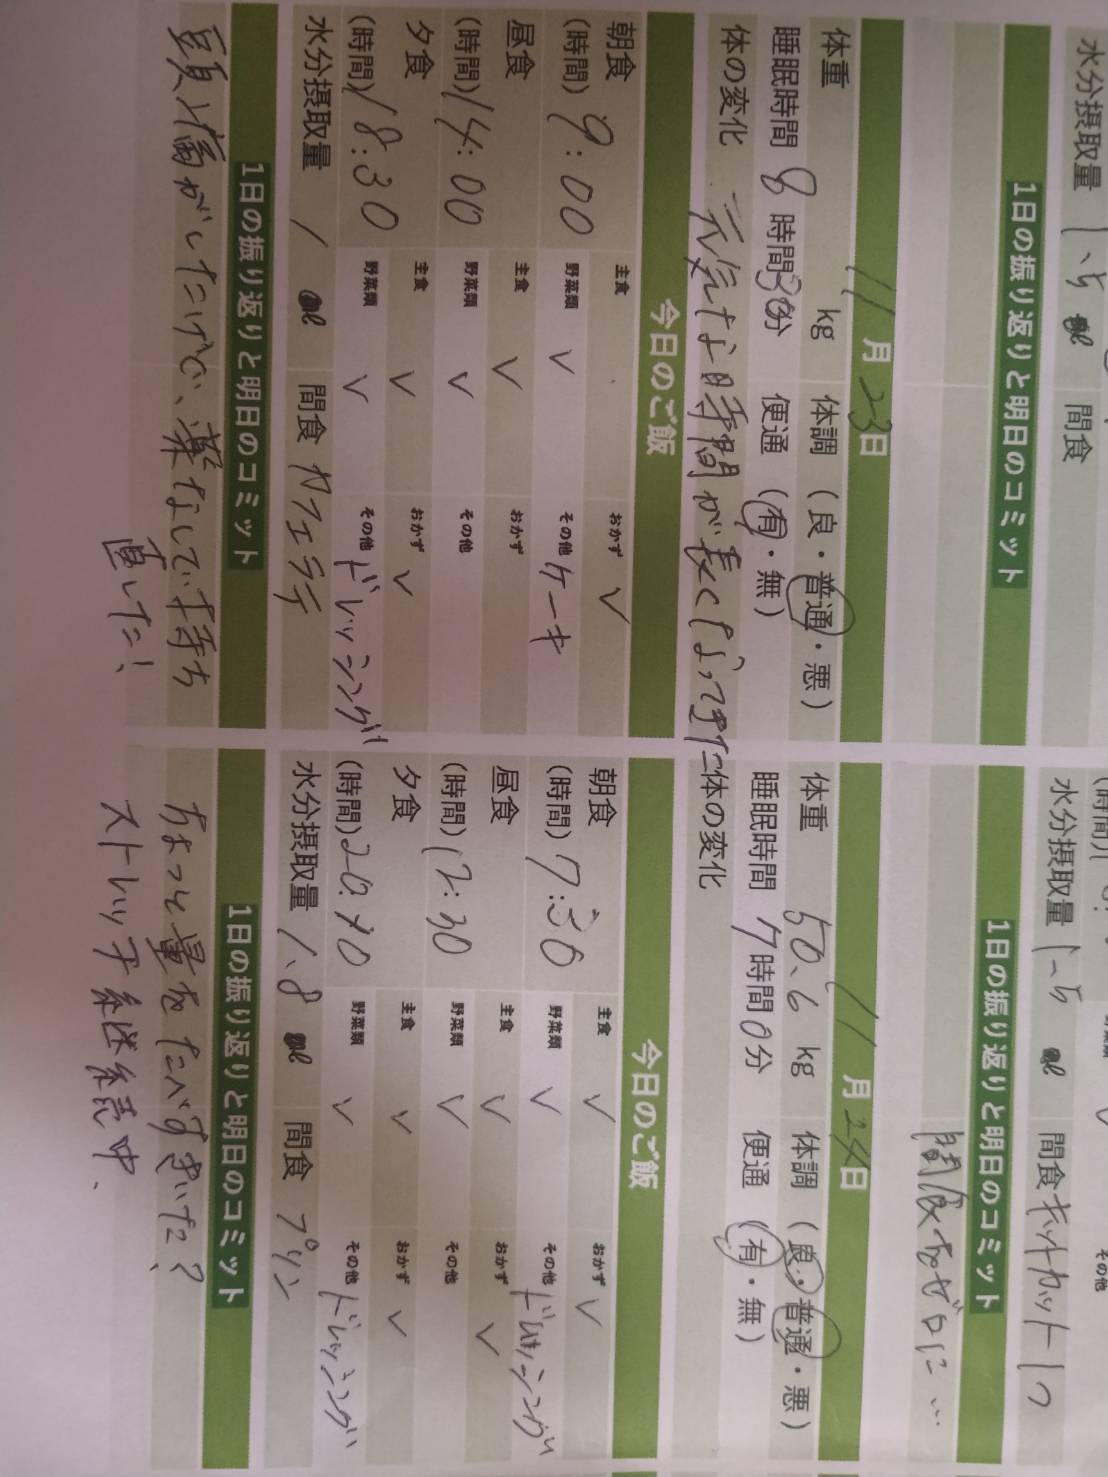 水分摂取量 1、5 l 間食
1日の振り返りと明日のコミット
(時間)
野菜類
その他
水分摂取量 1-5 l 間食 キットカット1つ
1日の振り返りと明日のコミット
間食もゼロに…
11月23日
体重 kg 体調(良・普通・悪)
睡眠時間 8時間30分 便通(有・無)
体の変化 元気な時間が長くなってきた
今日のご飯
朝食 主食 おかず ✓
(時間) 9:00 野菜類 ✓ その他 ケーキ
昼食 主食 ✓ おかず
(時間) 14:00 野菜類 ✓ その他
夕食 主食 ✓ おかず ✓
(時間) 18:30 野菜類 ✓ その他 ドレッシング
水分摂取量 1 l 間食 カフェラテ
1日の振り返りと明日のコミット
頭痛がしたけど、薬なしで持ち
直した!
11月24日
体重 50、6 kg 体調(良・普通・悪)
睡眠時間 7時間0分 便通(有・無)
体の変化
今日のご飯
朝食 主食 ✓ おかず ✓
(時間) 7:30 野菜類 ✓ その他 ドレッシング
昼食 主食 ✓ おかず ✓
(時間) 12:30 野菜類 ✓ その他
夕食 主食 ✓ おかず ✓
(時間) 20: 野菜類 ✓ その他 ドレッシング
水分摂取量 1、8 l 間食 プリン
1日の振り返りと明日のコミット
ちょっと量をたべすぎた?
ストレッチ継続中、